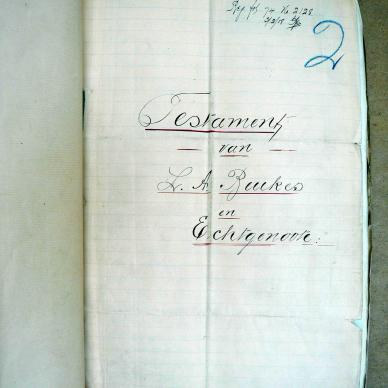 Reg. fol 74 No 2128
2
Testament
van
L. A. Beukes
en
Echtgenoote: